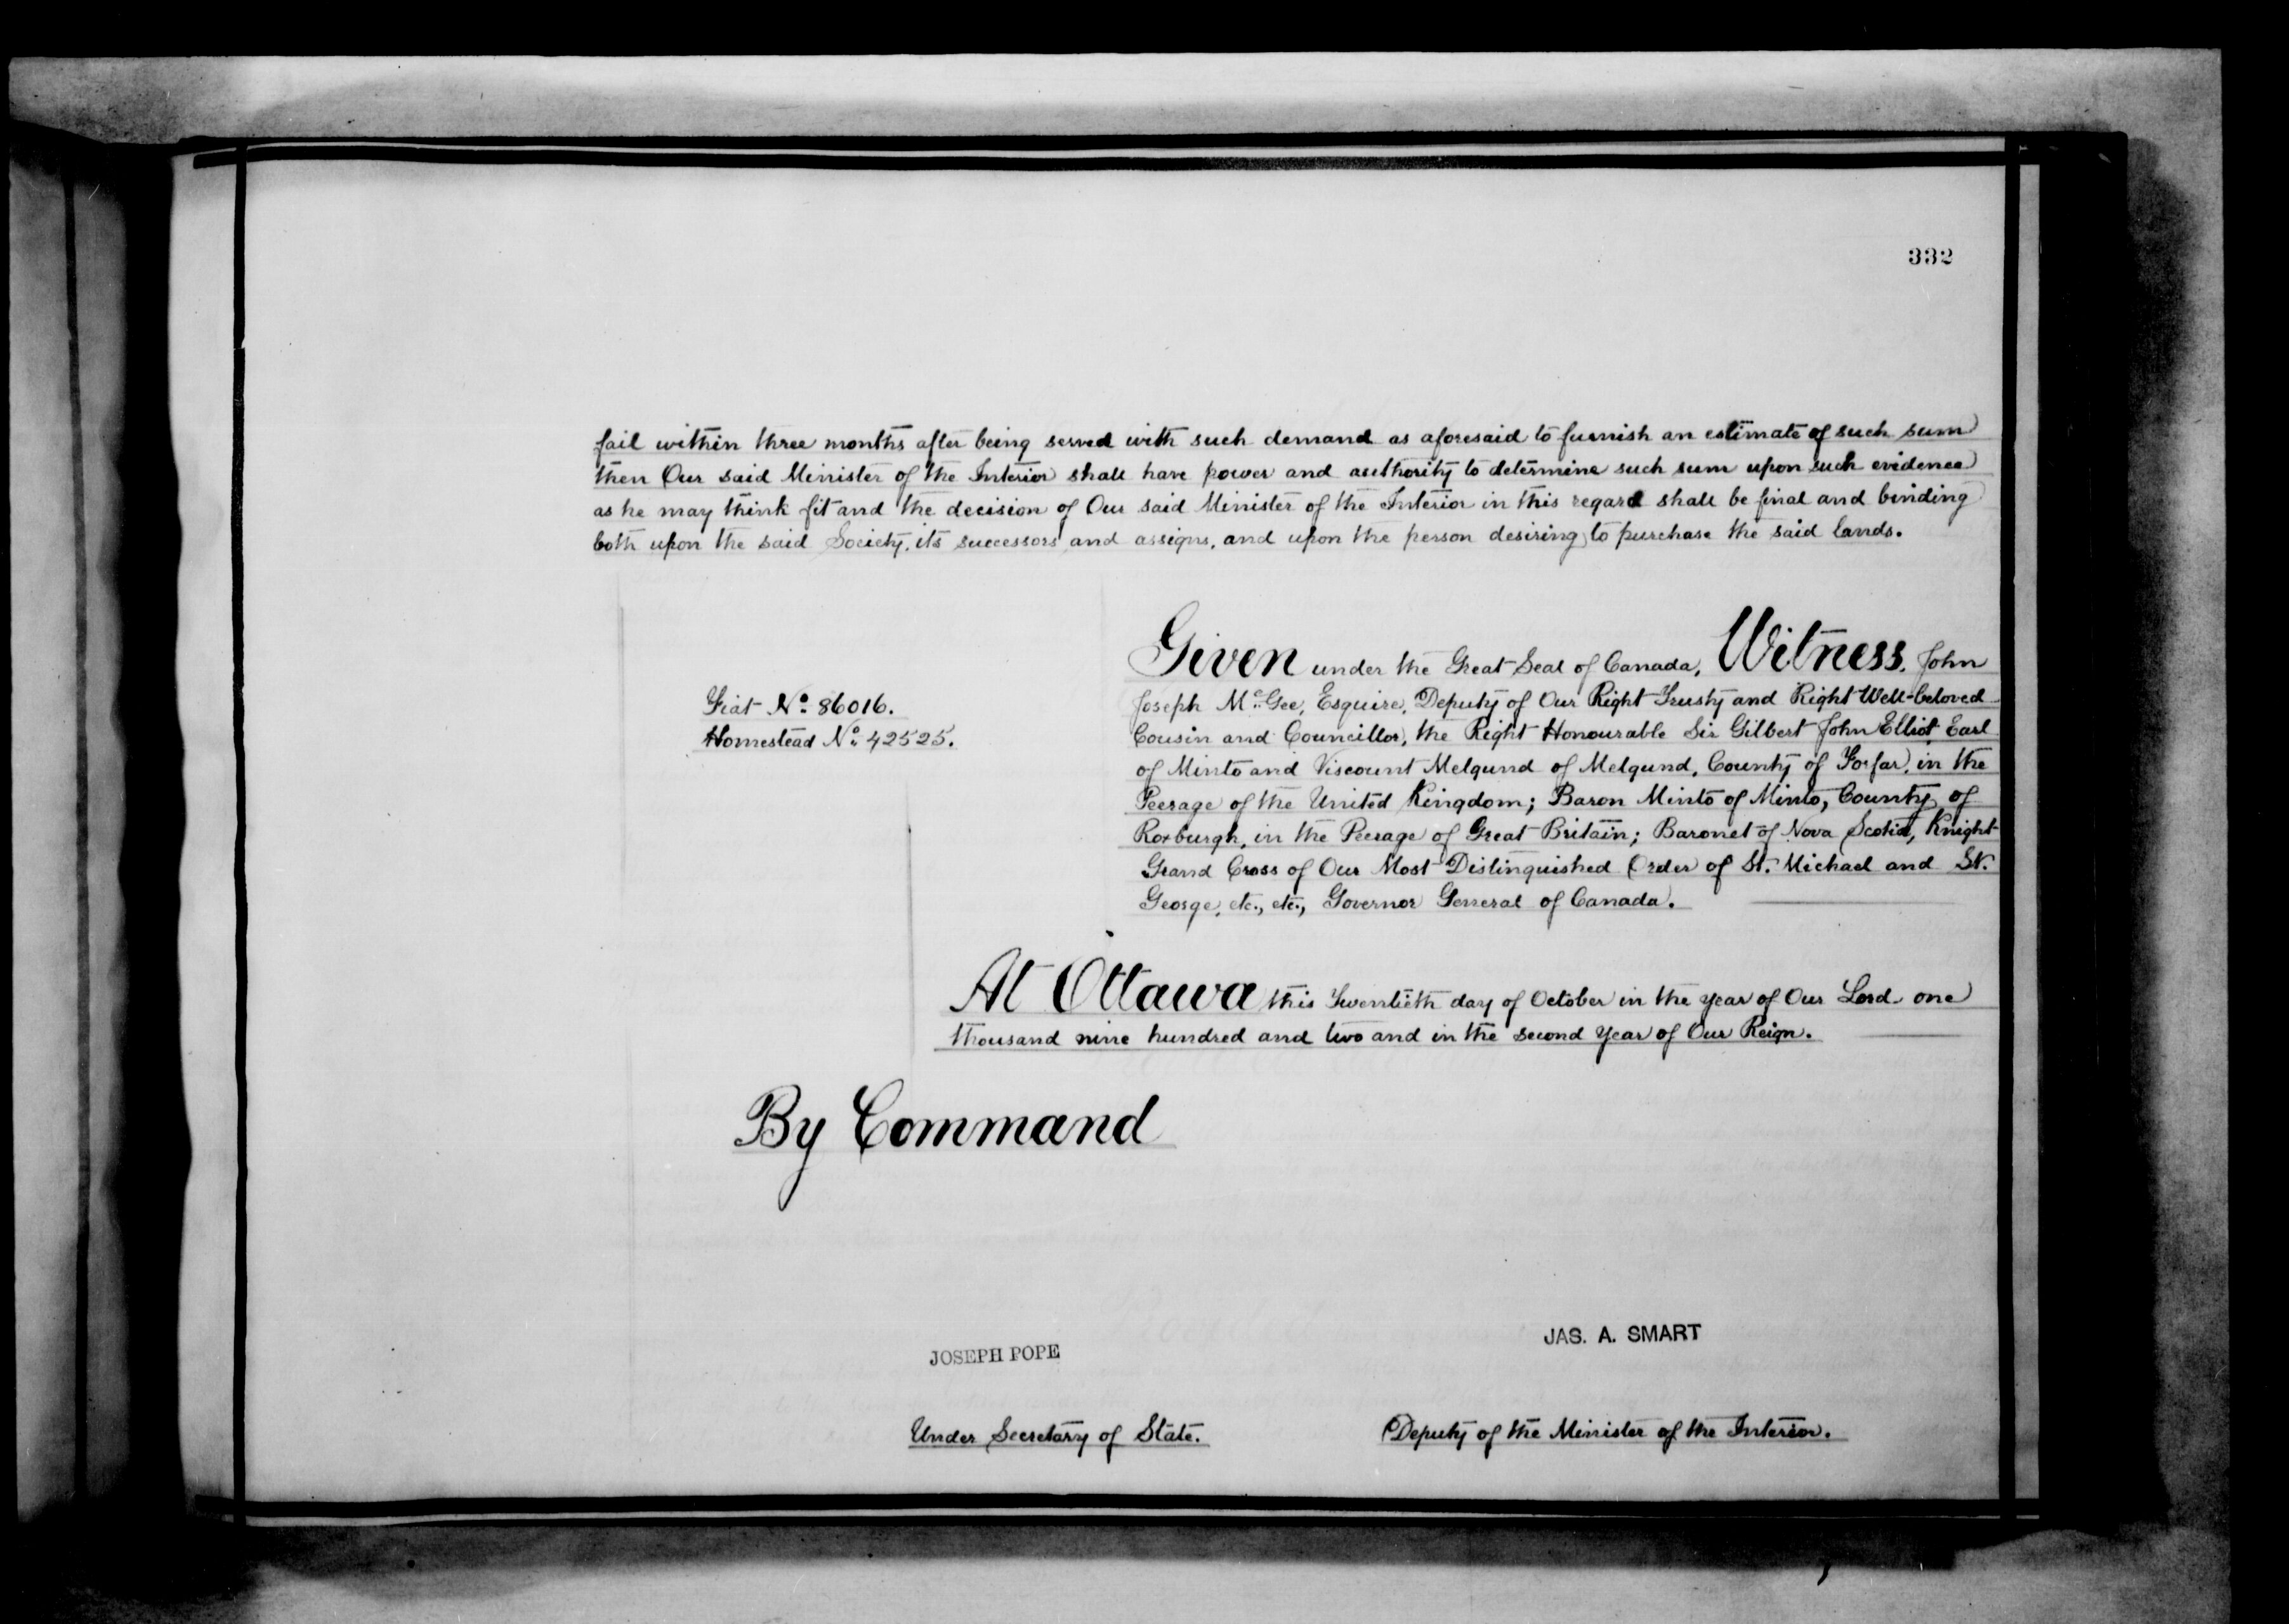 332
fail within three months after being served with such demand as aforesaid to furnish an estimate of such sum
then Our said Minister of the Interior shall have power and authority to determine such sum upon such evidence
as he may think fit and the decision of Our said Minister of the Interior in this regard shall be final and binding
both upon the said Society, its successors and assigns, and upon the person desiring to purchase the said lands.
Given under the Great Seal of Canada, Witness, John
Joseph McGee, Esquire, Deputy of Our Right Trusty and Right Well-beloved
Cousin and Councillor, the Right Honourable Sir Gilbert John Elliot Earl
of Minto and Viscount Melgund of Melgund, County of Forfar, in the
Peerage of the United Kingdom; Baron Minto of Minto, County of
Roxburgh, in the Peerage of Great Britain; Baronet of Nova Scotia, Knight
Grand Cross of Our Most Distinguished Order of St. Michael and St.
George, etc., etc., Governor General of Canada.
Fiat No. 86016.
Homestead No. 42525.
At Ottawa this Twentieth day of October in the year of Our Lord one
thousand nine hundred and two and in the second year of Our Reign.
By Command
JOSEPH POPE
Under Secretary of State.
JAS. A. SMART
Deputy of the Minister of the Interior.